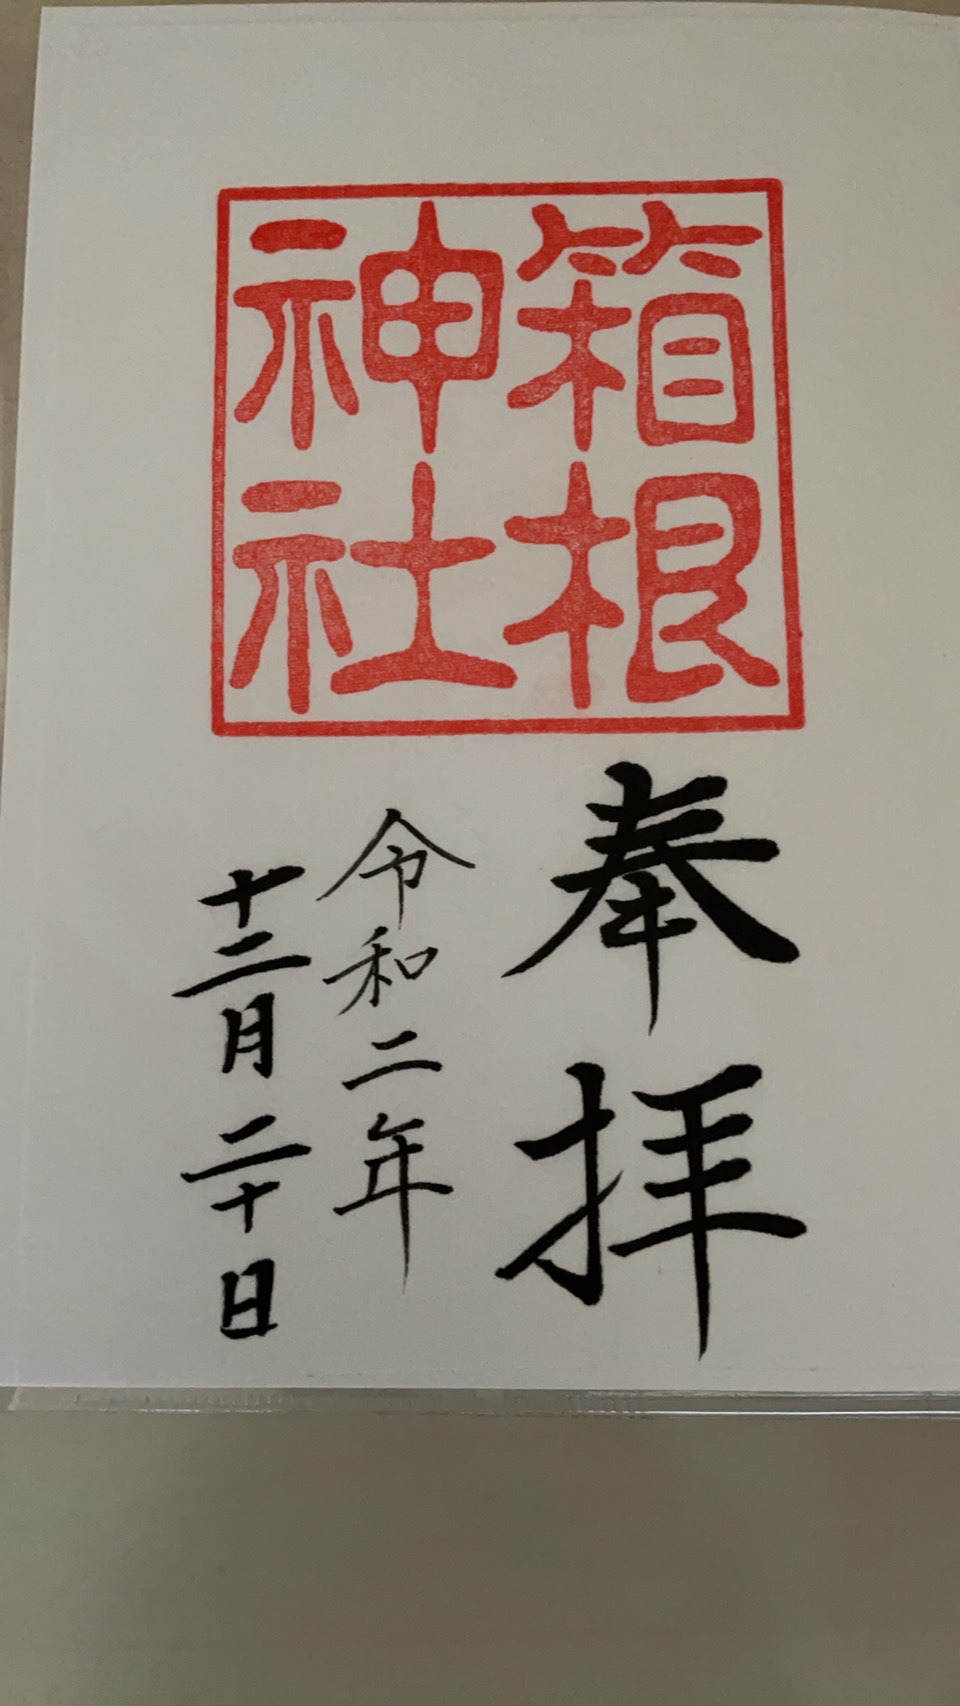 箱根
神社
奉拝
令和二年
十二月二十日